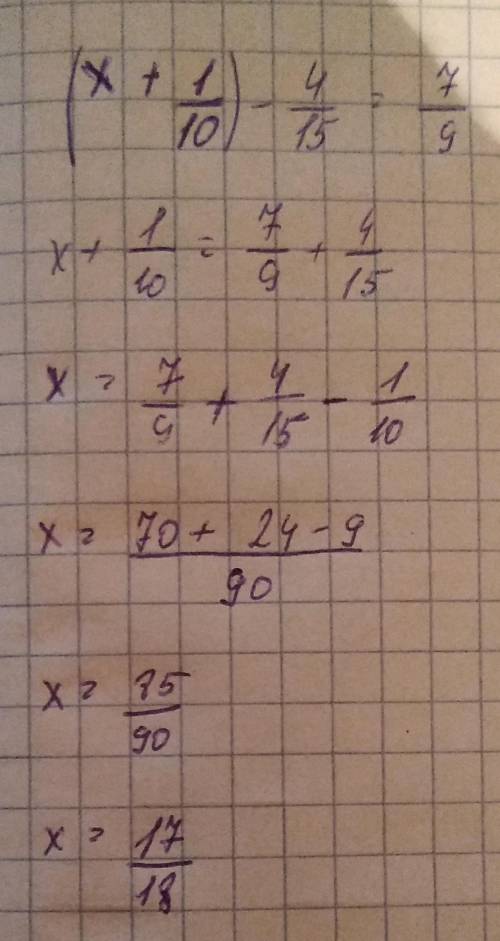 (x + 1/10) - 4/15 = 7/9
x + 1/10 = 7/9 + 4/15
x = 7/9 + 4/15 - 1/10
x = (70 + 24 - 9)/90
x = 85/90
x = 17/18